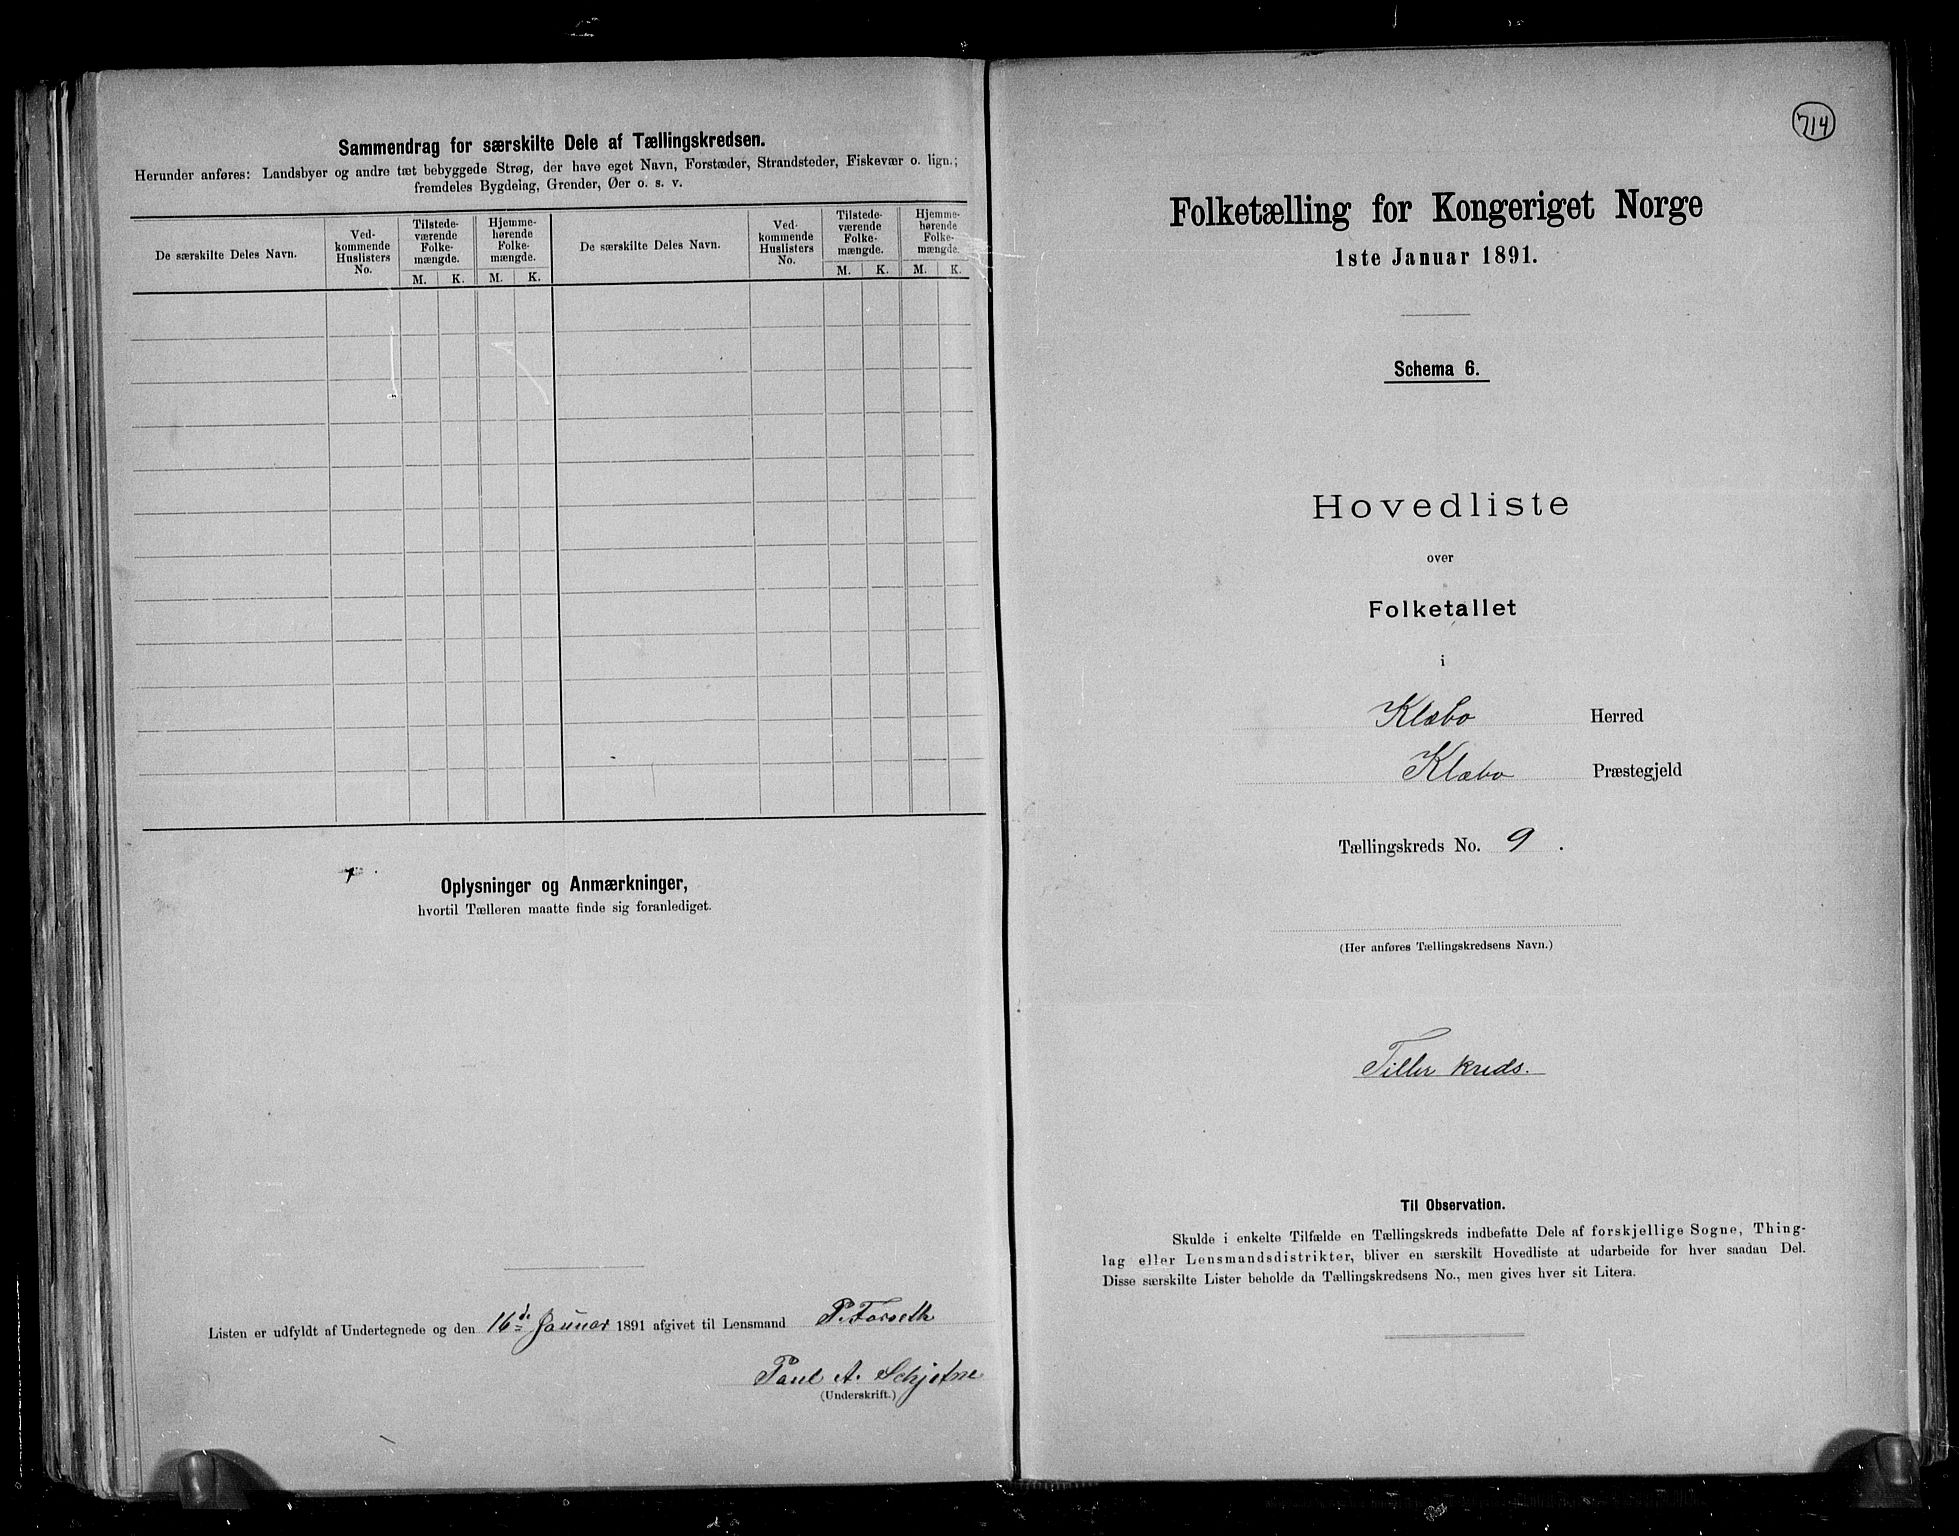 Sammendrag for særskilte Dele af Tællingskredsen.
Herunder anføres: Landsbyer og andre tæt bebyggede Strøg, der have eget Navn, Forstæder, Strandsteder, Fiskevær o. lign.;
fremdeles Bygdelag, Grender, Øer o. s. v.
De særskilte Deles Navn.
Ved-
kommende
Huslisters
No.
Tilstede-
værende
Folke-
mængde.
Hjemme-
hørende
Folke-
mængde.
M. K. M. K.
De særskilte Deles Navn.
Ved-
kommende
Huslisters
No.
Tilstede-
værende
Folke-
mængde.
Hjemme-
hørende
Folke-
mængde.
M. K. M. K.
Oplysninger og Anmærkninger,
hvortil Tælleren maatte finde sig foranlediget.
Listen er udfyldt af Undertegnede og den 16de Januar 1891 afgivet til Lensmand P. Forseth
Paul A. Schjetne
(Underskrift.)
714
Folketælling for Kongeriget Norge
1ste Januar 1891.
Schema 6.
Hovedliste
over
Folketallet
i
Klæbo Herred
Klæbo Præstegjeld
Tællingskreds No. 9.
(Her anføres Tællingskredsens Navn.)
Tiller kreds.
Til Observation.
Skulde i enkelte Tilfælde en Tællingskreds indbefatte Dele af forskjellige Sogne, Thing-
lag eller Lensmandsdistrikter, bliver en særskilt Hovedliste at udarbeide for hver saadan Del.
Disse særskilte Lister beholde da Tællingskredsens No., men gives hver sit Litera.